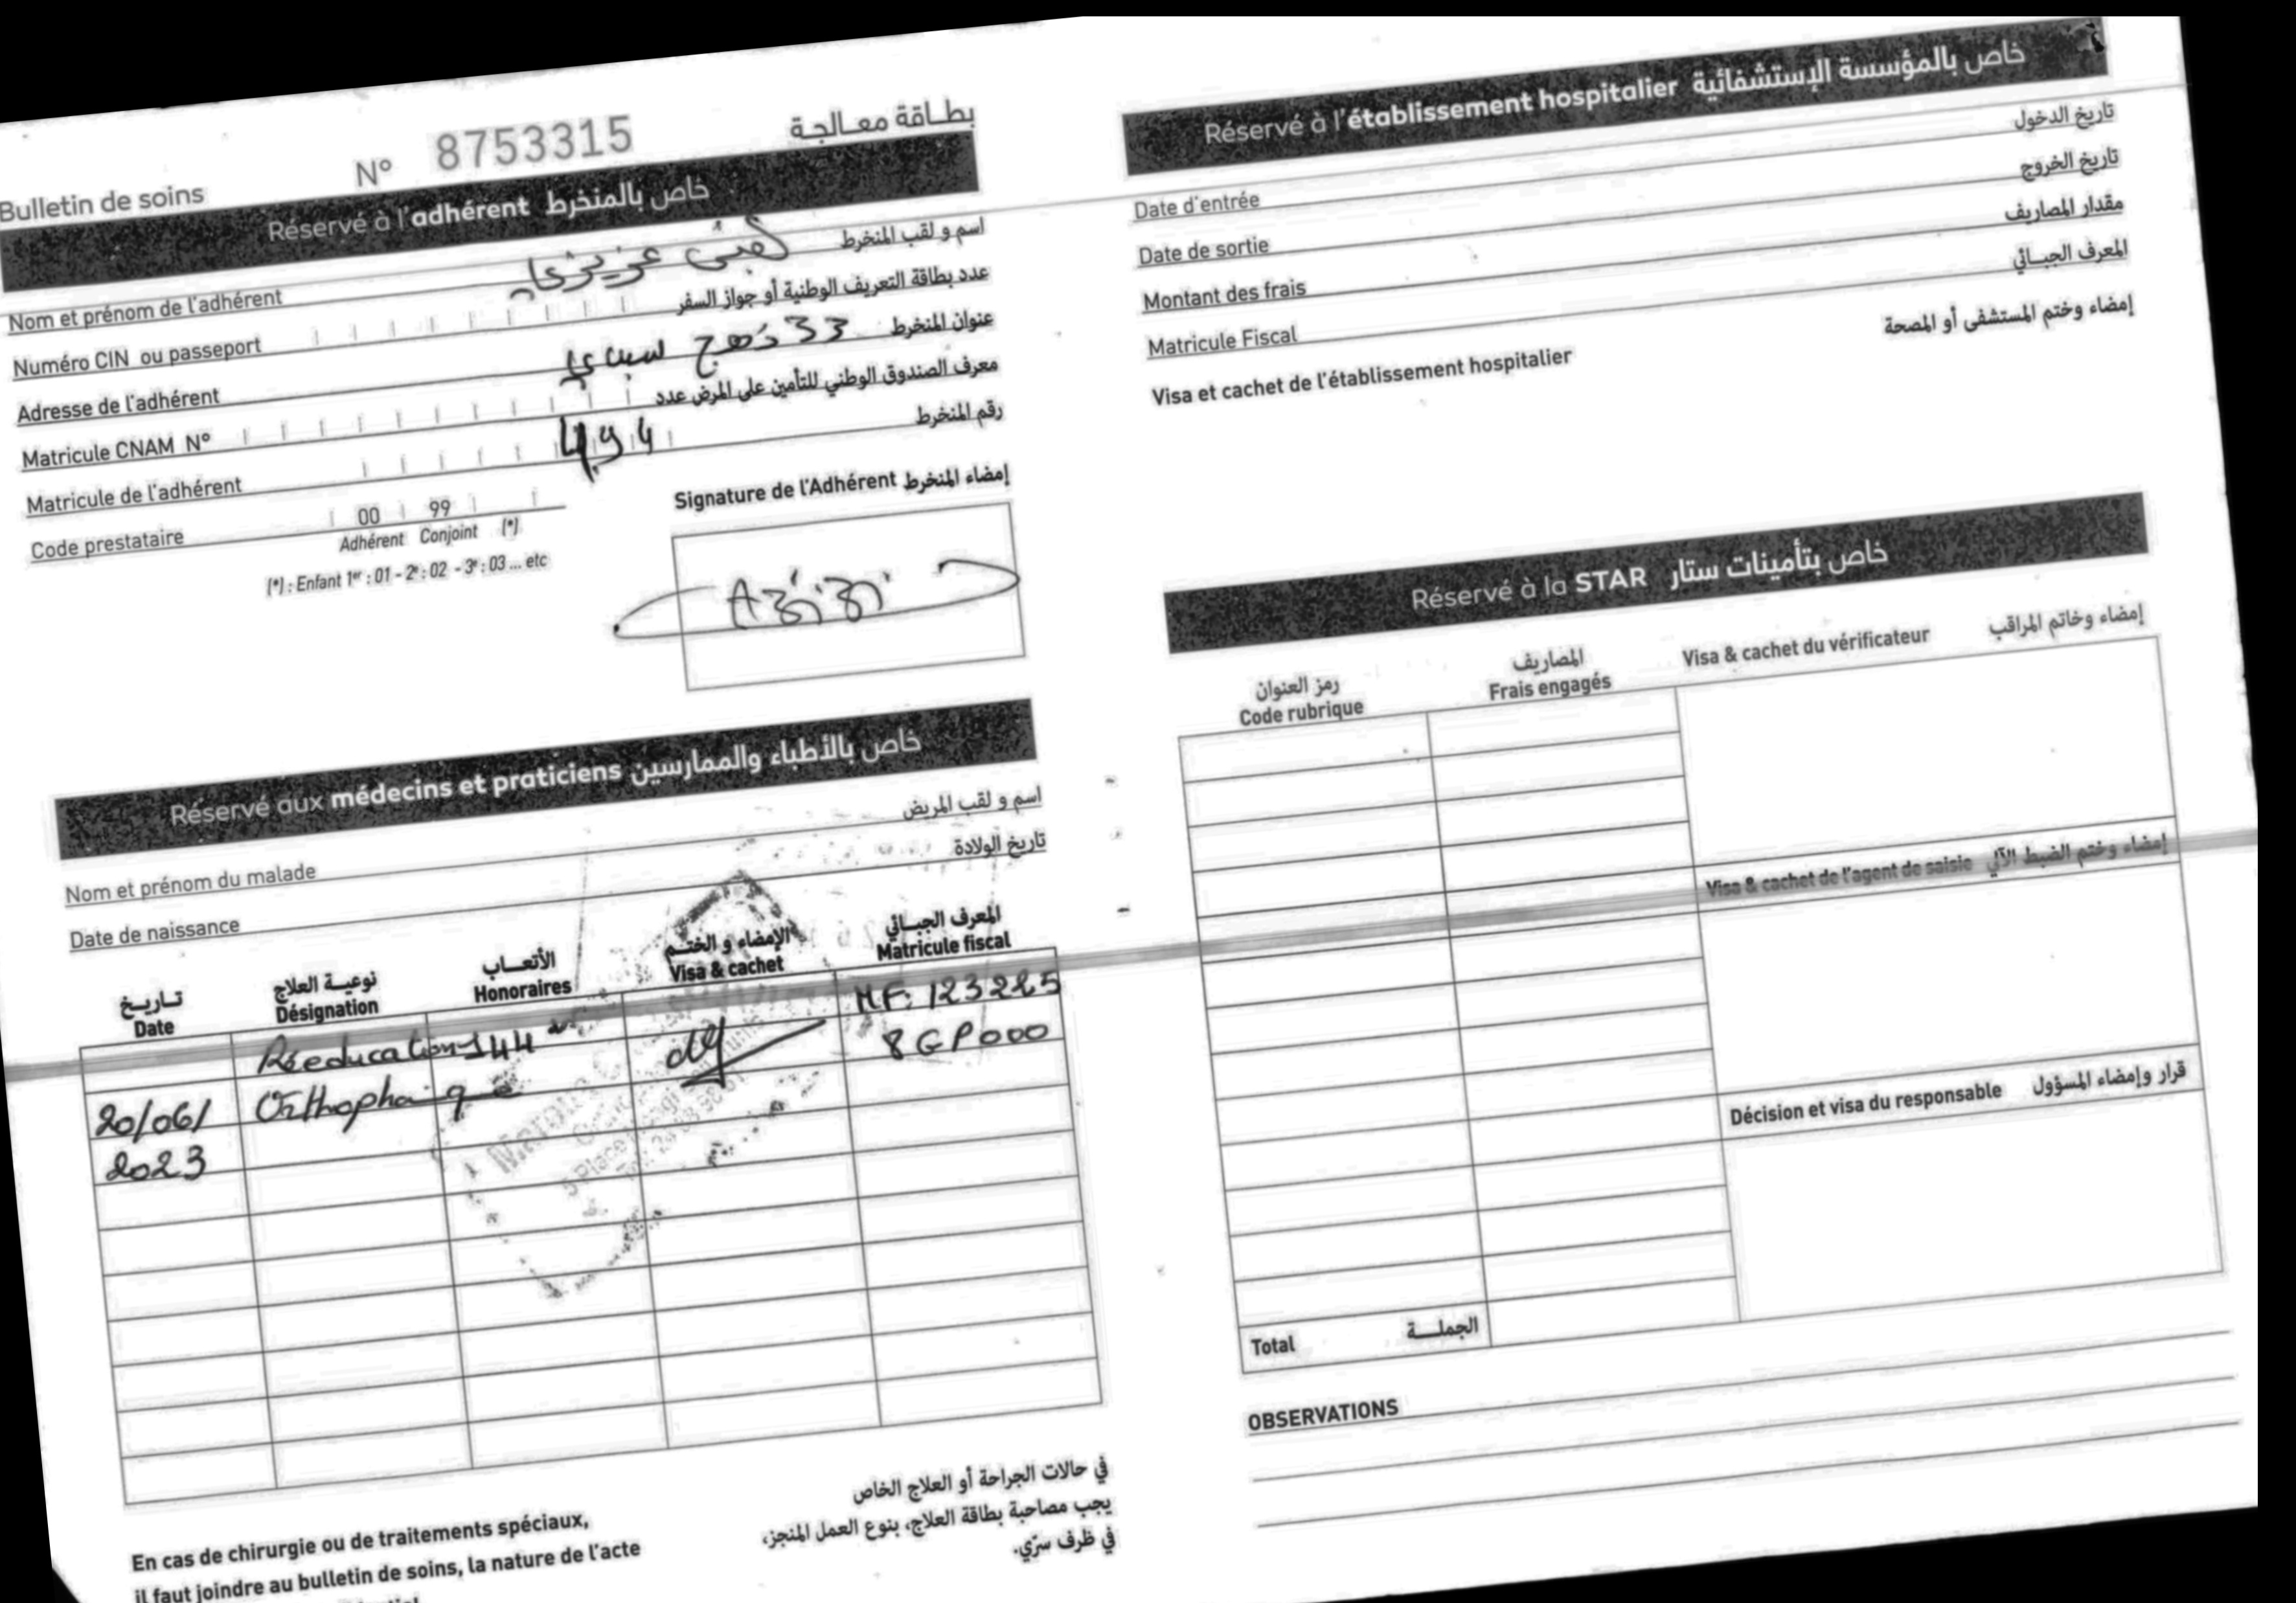 Bulletin de soins
N° 8753315
بطاقة معالجة
Réservé à l'adhérent خاص بالمنخرط
Nom et prénom de l'adhérent عزيزي اسم و لقب المنخرط
Numéro CIN ou passeport عدد بطاقة التعريف الوطنية أو جواز السفر
Adresse de l'adhérent 33 نهج سيدي عنوان المنخرط
Matricule CNAM N° معرف الصندوق الوطني للتأمين على المرض عدد
Matricule de l'adhérent 494 رقم المنخرط
Code prestataire 00 99
Adhérent Conjoint (*)
(*) : Enfant 1er : 01 - 2e : 02 - 3e : 03 ... etc
Signature de l'Adhérent إمضاء المنخرط
Azizi
Réservé aux médecins et praticiens خاص بالأطباء والممارسين
Nom et prénom du malade اسم و لقب المريض
Date de naissance تاريخ الولادة
تاريخ نوعية العلاج الأتعاب الإمضاء و الختم المعرف الجبائي
Date Désignation Honoraires Visa & cachet Matricule fiscal
Rééducation 144 MF: 123225
20/06/ Orthophonique 8GP000
2023
En cas de chirurgie ou de traitements spéciaux,
il faut joindre au bulletin de soins, la nature de l'acte
في حالات الجراحة أو العلاج الخاص
يجب مصاحبة بطاقة العلاج، بنوع العمل المنجز،
في ظرف سرّي.
Réservé à l'établissement hospitalier خاص بالمؤسسة الإستشفائية
Date d'entrée تاريخ الدخول
Date de sortie تاريخ الخروج
Montant des frais مقدار المصاريف
Matricule Fiscal المعرف الجبائي
Visa et cachet de l'établissement hospitalier إمضاء وختم المستشفى أو المصحة
Réservé à la STAR خاص بتأمينات ستار
رمز العنوان المصاريف Visa & cachet du vérificateur إمضاء وخاتم المراقب
Code rubrique Frais engagés
Visa & cachet de l'agent de saisie إمضاء وختم الضبط الآلي
Décision et visa du responsable قرار وإمضاء المسؤول
Total الجملة
OBSERVATIONS